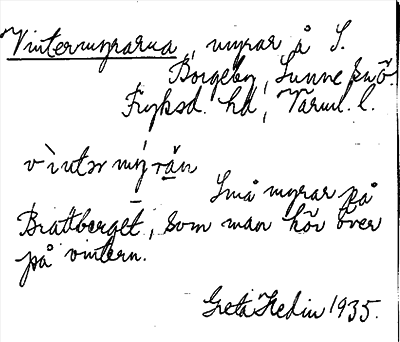 Vintermyrarna, myrar å S.
Borgeby, Sunne sn
Fryksd. hd, Värml. l.
vìntər my̆răn
Små myrar på
Brattberget, som man kör över
på vintern.
Greta Hedin 1935.